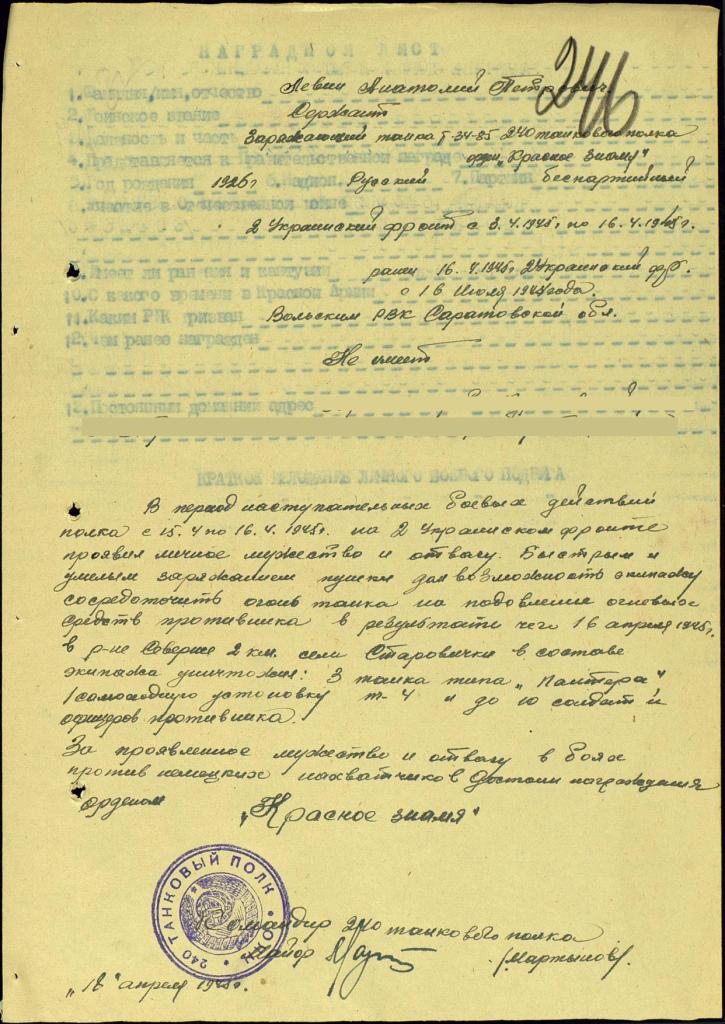 НАГРАДНОЙ ЛИСТ
246
1. Фамилия, имя, отчество Левин Анатолий Петрович.
2. Воинское звание Сержант
3. Должность и часть Заряжающий танка Т-34-85 240 танкового полка
4. Представляется к Правительственной награде орден "Красное Знамя"
5. Год рождения 1926 г 6. Национ. Русский 7. Партийн беспартийный
8. Участие в Отечественной войне
2 Украинский фронт с 3.4.1945г по 16.4.1945г.
9. Имеет ли ранения и контузии ранен 16.4.1945г. 2 Украинский фр.
10. С какого времени в Красной Армии с 16 Июля 1943 года.
11. Каким РВК призван Вольским РВК Саратовской обл.
12. Чем ранее награжден
Не имеет
13. Постоянный домашний адрес
КРАТКОЕ ИЗЛОЖЕНИЕ ЛИЧНОГО БОЕВОГО ПОДВИГА
В период наступательных боевых действий
полка с 15.4 по 16.4.1945г. на 2 Украинском фронте
проявил личное мужество и отвагу. Быстрым и
умелым заряжанием пушки дал возможность экипажу
сосредоточить огонь танка на подовление огневых
средств противника в результати чего 16 апреля 1945г.
в р-не Севернее 2 км. села Старовички в составе
экипажа уничтожил: 3 танка типа "Пантера"
1 самоходную установку т-4 и до 10 солдат и
офицеров противника.
За проявленное мужество и отвагу в боях
против немецких захватчиков Достоин награждения
орденом "Красное знамя"
240 ТАНКОВЫЙ ПОЛК
НКО
Командир 240 танкового полка
Майор /Мартынов/.
"18" апреля 1945г.